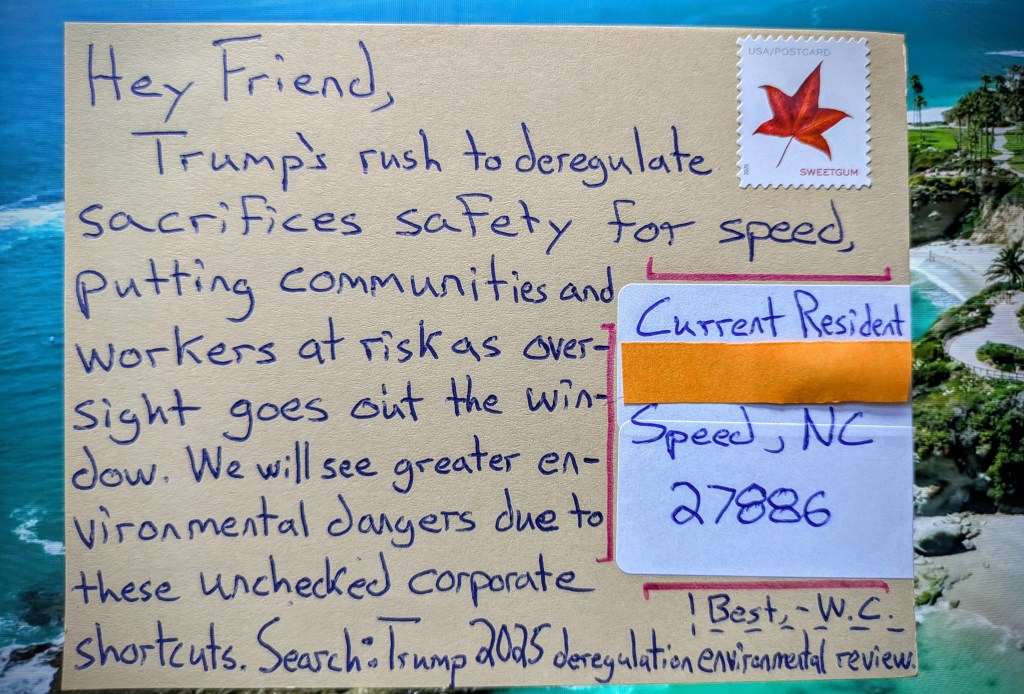 Hey Friend,
USA/POSTCARD
SWEETGUM
Trump's rush to deregulate
sacrifices safety for speed,
putting communities and
workers at risk as over-
sight goes out the win-
dow. We will see greater en-
vironmental dangers due to
these unchecked corporate
shortcuts. Search: Trump 2025 deregulation environmental review.
Current Resident
Speed, NC
27886
! Best, - W.C.